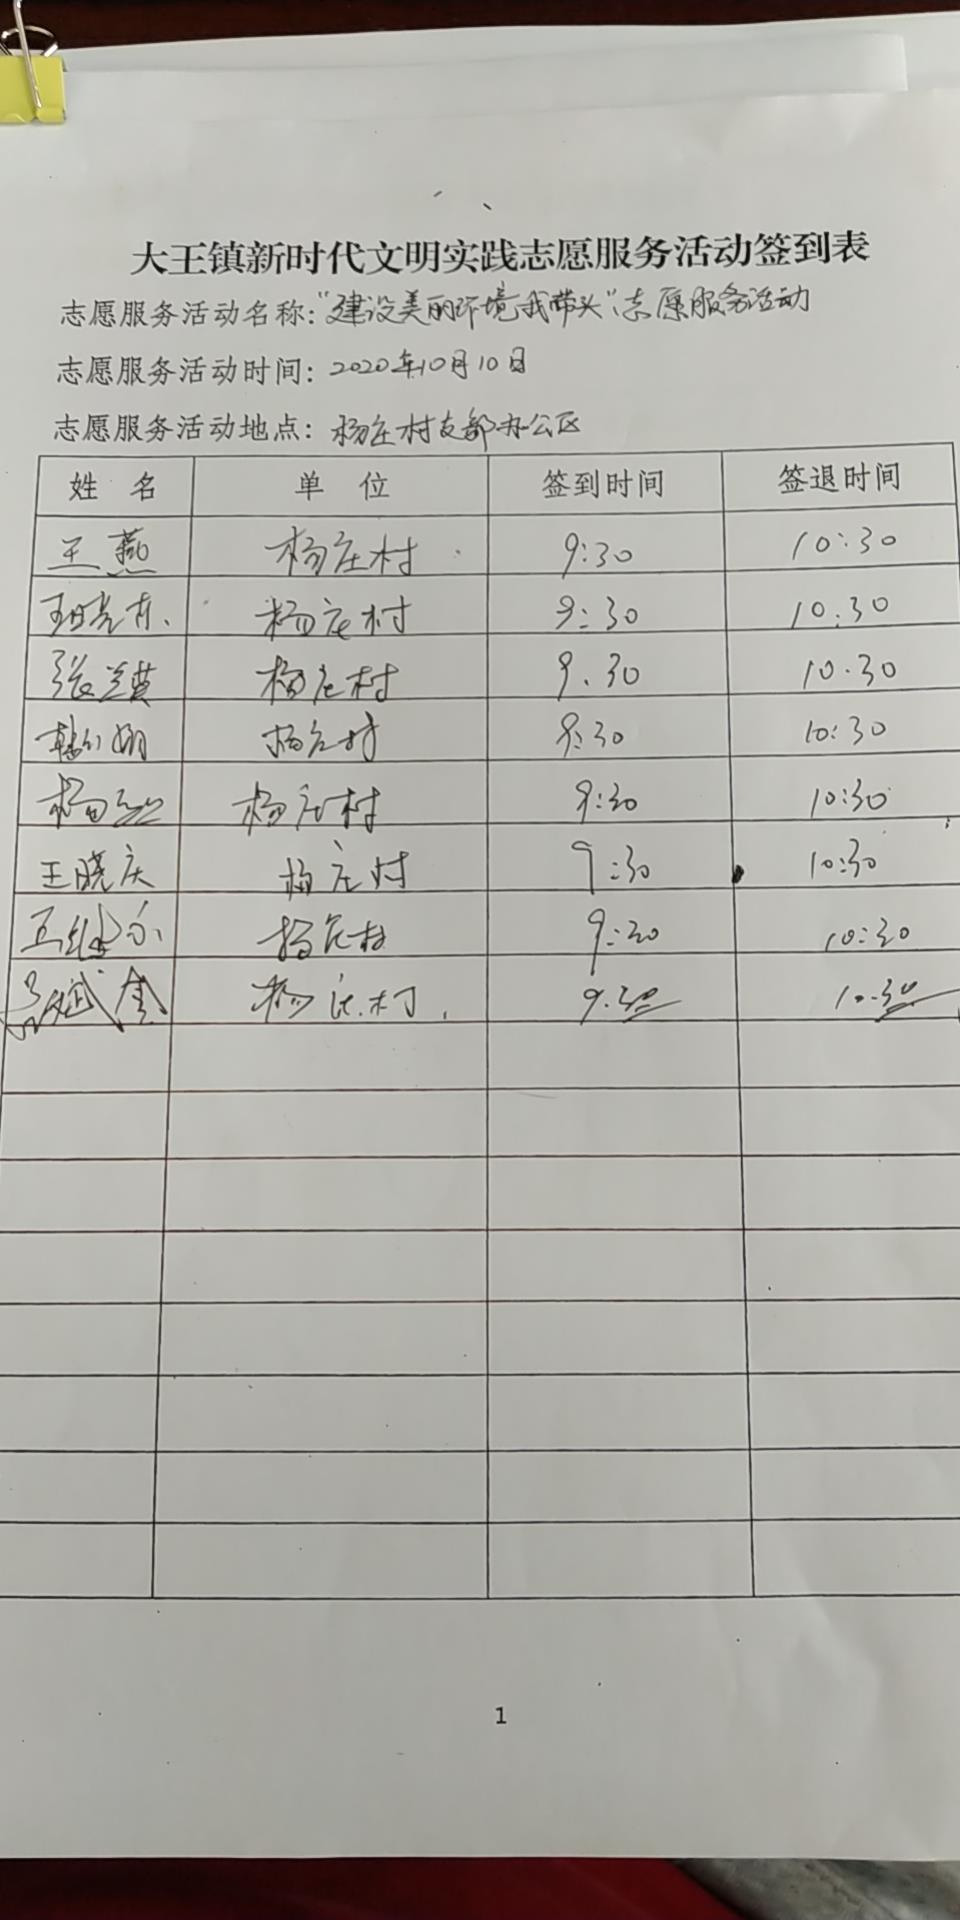 大王镇新时代文明实践志愿服务活动签到表
志愿服务活动名称："建设美丽环境我带头"志愿服务活动
志愿服务活动时间：2020年10月10日
志愿服务活动地点：杨庄村支部办公区
姓 名 单 位 签到时间 签退时间
王燕 杨庄村 9:30 10:30
杨庄村 9:30 10:30
张兰英 杨庄村 9:30 10:30
杨庄村 9:30 10:30
杨庄村 9:30 10:30
王晓庆 杨庄村 9:30 10:30
杨庄村 9:30 10:30
杨庄村 9:30 10:30
1